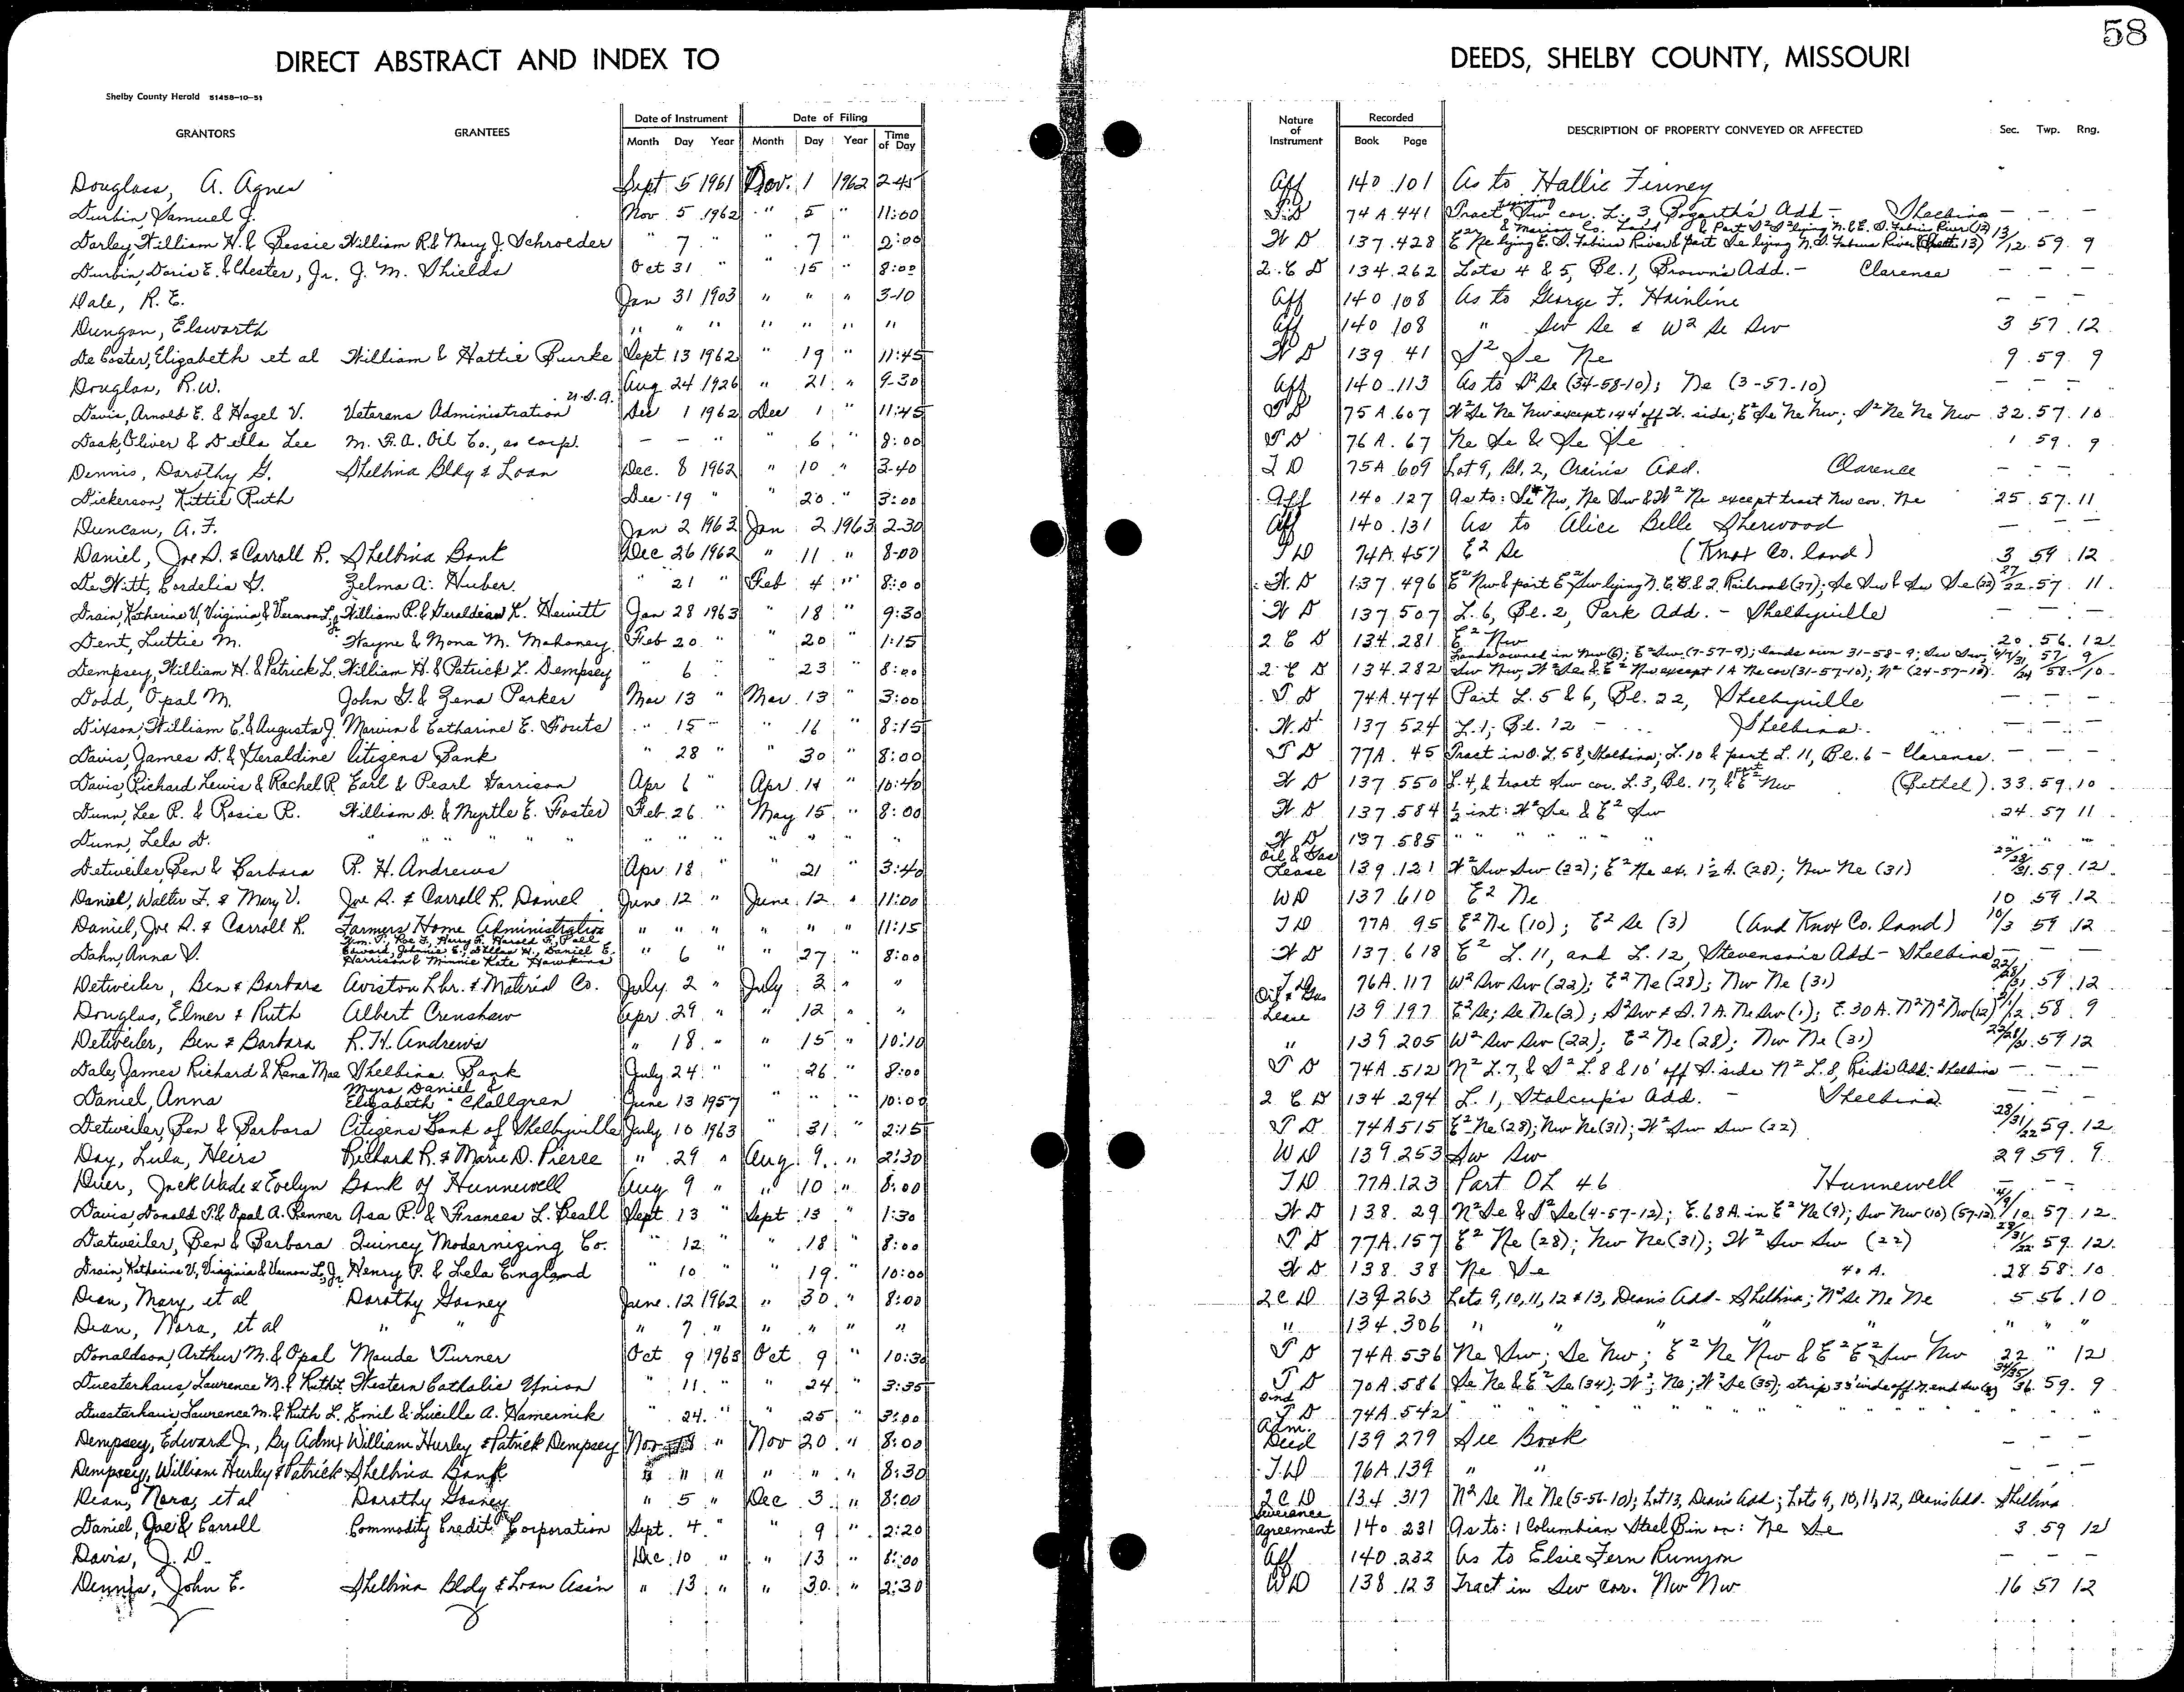 58
DIRECT ABSTRACT AND INDEX TO DEEDS, SHELBY COUNTY, MISSOURI
Shelby County Herald 51458-10-51
GRANTORS GRANTEES Date of Instrument Date of Filing Nature of Instrument Recorded DESCRIPTION OF PROPERTY CONVEYED OR AFFECTED Sec. Twp. Rng.
Month Day Year Month Day Year Time of Day Book Page
Douglass, A. Agnes Sept 5 1961 Nov. 1 1962 2-45 Aff 140 101 As to Hallie Finney
Durbin, Samuel J. Nov 5 1962 " 5 " 11:00 T.D 74A 441 Tract Sw cor. L. 3, Bogarth's Add - Shelbina - - -
Darley, William H. & Bessie William R. & Mary J. Schroeder " 7 " " 7 " 2:00 W D 137 428 E² Ne lying E. S. Fabius River & part Se lying N. S. Fabius River 13/12 59 9
Durbin, Doris E. & Chester, Jr. J. M. Shields Oct 31 " " 15 " 8:00 2 C D 134 262 Lots 4 & 5, Bl. 1, Brown's Add. - Clarence - - -
Dale, R. E. Jan 31 1903 " " " 3-10 Aff 140 108 As to George F. Hainline - - -
Dungan, Elsworth " " " " " " " Aff 140 108 " Sw Se & W² Se Sw 3 57 12
De Coster, Elizabeth et al William & Hattie Burke Sept 13 1962 " 19 " 11:45 W D 139 41 S² Se Ne 9 59 9
Douglas, R.W. Aug 24 1926 " 21 " 9-30 Aff 140 113 As to S² Se (34-58-10); Ne (3-57-10) - - -
Davis, Arnold E. & Hazel V. Veterans Administration U.S.A. Dec 1 1962 Dec 1 " 11:45 T D 75A 607 W² Se Ne Nw except 144 off W. side; E² Se Ne Nw; S² Ne Ne Nw 32 57 10
Dask, Oliver & Della Lee M. F. A. Oil Co., as corp. - - " " 6 " 8:00 T D 76A 67 Ne Se & Se Se 1 59 9
Dennis, Dorothy G. Shelbina Bldg & Loan Dec. 8 1962 " 10 " 3-40 T D 75A 609 Lot 9, Bl. 2, Crain's Add. Clarence - - -
Dickerson, Kittie Ruth Dec 19 " " 20 " 3:00 Aff 140 127 As to: Se Nw, Ne Sw & W² Ne except tract Nw cor. Ne 25 57 11
Duncan, A. F. Jan 2 1963 Jan 2 1963 2-30 Aff 140 131 As to Alice Belle Sherwood - - -
Daniel, Joe S. & Carroll R. Shelbina Bank Dec 26 1962 " 11 " 8-00 T D 74A 457 E² Se (Knox Co. land) 3 59 12
De Witt, Cordelia G. Zelma A. Huber " 21 " Feb 4 " 8:00 W D 137 496 E² Nw & part E² Sw lying N. C. B. & Q. Railroad (27); Se Sw & Sw Se (22) 27/22 57 11
Drain, Katherine V, Virginia & Vernon L, Jr. William R. & Geraldean K. Hewitt Jan 28 1963 " 18 " 9:30 W D 137 507 L. 6, Bl. 2, Park Add. - Shelbyville - - -
Dent, Luttie M. Wayne & Mona M. Mahoney Feb 20 " " 20 " 1:15 2 C D 134 281 E² Nw 20 56 12
Dempsey, William H. & Patrick L. William H. & Patrick L. Dempsey " 6 " 23 " 8:00 2 C D 134 282 Lands owned in Nw (6); E² Sw (7-57-9); lands own 31-58-9; Sw Sw, Sw Nw, W² Se & E² Nw except 1 A Ne cor (31-57-10); N² (24-57-10)
Dodd, Opal M. John G. & Zena Parker Mar 13 " Mar 13 " 3:00 T D 74A 474 Part L. 5 & 6, Bl. 22, Shelbyville - - -
Dixson, William C. & Augusta J. Marvin & Catharine E. Fouts " 15 " " 16 " 8:15 W. D 137 524 L. 1, Bl. 12 - Shelbina - - -
Davis, James D. & Geraldine Citizens Bank " 28 " " 30 " 8:00 T D 77A 45 Tract in O. L 58, Shelbina; L. 10 & part L. 11, Bl. 6 - Clarence - - -
Davis, Richard Lewis & Rachel R. Earl & Pearl Garrison Apr 6 " Apr 11 " 10:40 W D 137 550 L. 4, & tract Sw cor. L. 3, Bl. 17, & part E² Nw (Bethel) 33 59 10
Dunn, Lee R. & Rosie R. William D. & Myrtle E. Foster Feb 26 " May 15 " 8:00 W D 137 584 ½ int: W² Se & E² Sw 24 57 11
Dunn, Lela D. " " " " " " " " " " " W D 137 585 " " " " " " " "
Detweiler, Ben & Barbara R. H. Andrews Apr 18 " " 21 " 3:40 Oil & Gas Lease 139 121 W² Sw Sw (22); E² Ne ex. 1½ A. (28); Nw Ne (31) 22/28/31 59 12
Daniel, Walter F. & Mary V. Joe S. & Carroll R. Daniel June 12 " June 12 " 11:00 WD 137 610 E² Ne 10 59 12
Daniel, Joe S. & Carroll R. Farmers Home Administration " " " " " " 11:15 T D 77A 95 E² Ne (10); E² Se (3) (And Knox Co. land) 10/3 59 12
Dahn, Anna V. Harrison & Minnie Kate Hawkins " 6 " 27 " 8:00 W D 137 618 E² L. 11, and L. 12, Stevenson's Add - Shelbina - - -
Detweiler, Ben & Barbara Aviston Lbr. & Material Co. July 2 " July 3 " " T D 76A 117 W² Sw Sw (22); E² Ne (28); Nw Ne (31) 22/28/31 59 12
Douglas, Elmer & Ruth Albert Crenshaw Apr 29 " " 12 " " Oil & Gas Lease 139 197 E² Se; Se Ne (2); S² Sw & S. 7 A. Ne Sw (1); E. 30 A. N² N² Nw (12) 2/1/12 58 9
Detweiler, Ben & Barbara R. H. Andrews " 18 " " 15 " 10:10 " 139 205 W² Sw Sw (22); E² Ne (28); Nw Ne (31) 22/28/31 59 12
Dale, James Richard & Rena Mae Shelbina Bank July 24 " " 26 " 8:00 T D 74A 512 N² L. 7, & S² L. 8 & 10' off S. side N² L. 8, Reid's Add. Shelbina - - -
Daniel, Anna Myra Daniel & Elizabeth " Challgren June 13 1957 " " " 10:00 2 C D 134 294 L. 1, Stalcup's Add. - Shelbina - - -
Detweiler, Ben & Barbara Citizens Bank of Shelbyville July 10 1963 " 31 " 2:15 T D 74A 515 E² Ne (28); Nw Ne (31); W² Sw Sw (22) 28/31/22 59 12
Day, Lula, Heirs Richard R. & Marie D. Pierce " 29 " Aug 9 " 2:30 WD 139 253 Sw Sw 29 59 9
Duer, Jack Wade & Evelyn Bank of Hunnewell Aug 9 " " 10 " 8:00 T D 77A 123 Part OL 46 Hunnewell - - -
Davis, Donald P. & Opal A. Renner Asa R. & Frances L. Beall Sept 13 " Sept 13 " 1:30 W D 138 29 N² Se & S² Se (4-57-12); E. 68 A. in E² Ne (9); Sw Nw (10) (57-12) 4/9/10 57 12
Detweiler, Ben & Barbara Quincy Modernizing Co. " 12 " " 18 " 8:00 T D 77A 157 E² Ne (28); Nw Ne (31); W² Sw Sw (22) 28/31/22 59 12
Drain, Katherine V, Virginia & Vernon L, Jr. Henry P. & Lela England " 10 " 19 " 10:00 W D 138 38 Ne Se 40 A. 28 58 10
Dean, Mary, et al Dorothy Gosney June 12 1962 " 30 " 8:00 2 C D 134 263 Lots 9, 10, 11, 12 & 13, Dean's Add - Shelbina; N² Se Ne Ne 5 56 10
Dean, Nora, et al " " " 7 " " " " " " 134 306 " " " " " " " "
Donaldson, Arthur M. & Opal Maude Turner Oct 9 1963 Oct 9 " 10:30 T D 74A 536 Ne Sw; Se Nw; E² Ne Nw & E² E² Sw Nw 22 " 12
Duesterhaus, Lawrence M. & Ruth L. Western Catholic Union " 11 " " 24 " 3:35 T D 70A 586 Se Ne & E² Se (34); W²; Ne; W² Se (35); strip 33' wide off N. end Sw 34/35/36 59 9
Duesterhaus, Lawrence M. & Ruth L. Emil & Lucille A. Hamernik " 24 " " 25 " 3:00 and T D 74A 542 " " " " " " " "
Dempsey, Edward J., By Admx William Hurley & Patrick Dempsey Nov " Nov 20 " 8:00 Adm. Deed 139 279 See Book - - -
Dempsey, William Hurley & Patrick Shelbina Bank " " " " " " 8:30 T.D 76A 139 " " - - -
Dean, Nora, et al Dorothy Gosney " 5 " Dec 3 " 8:00 2 C D 134 317 N² Se Ne Ne (5-56-10); Lot 13, Dean's Add; Lots 9, 10, 11, 12, Dean's Add. Shelbina
Daniel, Joe & Carroll Commodity Credit Corporation Sept. 4 " " 9 " 2:20 Severance Agreement 140 231 As to: 1 Columbian Steel Bin on: Ne Se 3 59 12
Davis, J. D. Dec 10 " " 13 " 8:00 Aff 140 232 As to Elsie Fern Runyon - - -
Dennis, John E. Shelbina Bldg & Loan Ass'n " 13 " " 30 " 2:30 WD 138 123 Tract in Sw cor. Nw Nw 16 57 12